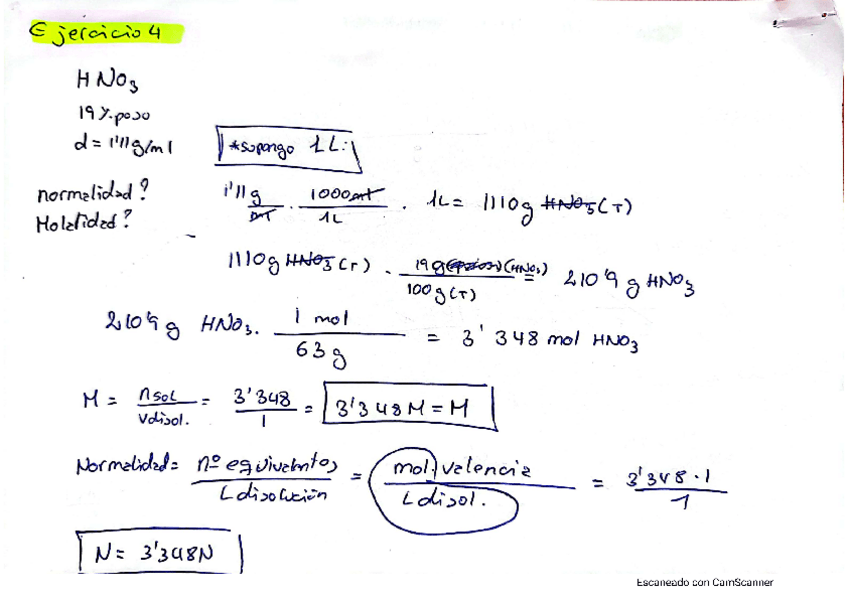 Ejercicio 4
HNO3
19 %peso
d = 1'11 g/ml
*supongo 1L:
normalidad?
Molaridad?
1'11 g / ml · 1000 ml / 1L · 1L = 1110 g HNO3 (T)
1110 g HNO3 (T) · 19 g (HNO3) / 100 g (T) = 210'9 g HNO3
210'9 g HNO3 · 1 mol / 63 g = 3'348 mol HNO3
M = nsol / Vdisol. = 3'348 / 1 = 3'348 M = M
Normalidad = nº equivalentes / L disolución = mol · valencia / L disol. = 3'348 · 1 / 1
N = 3'348 N
Escaneado con CamScanner